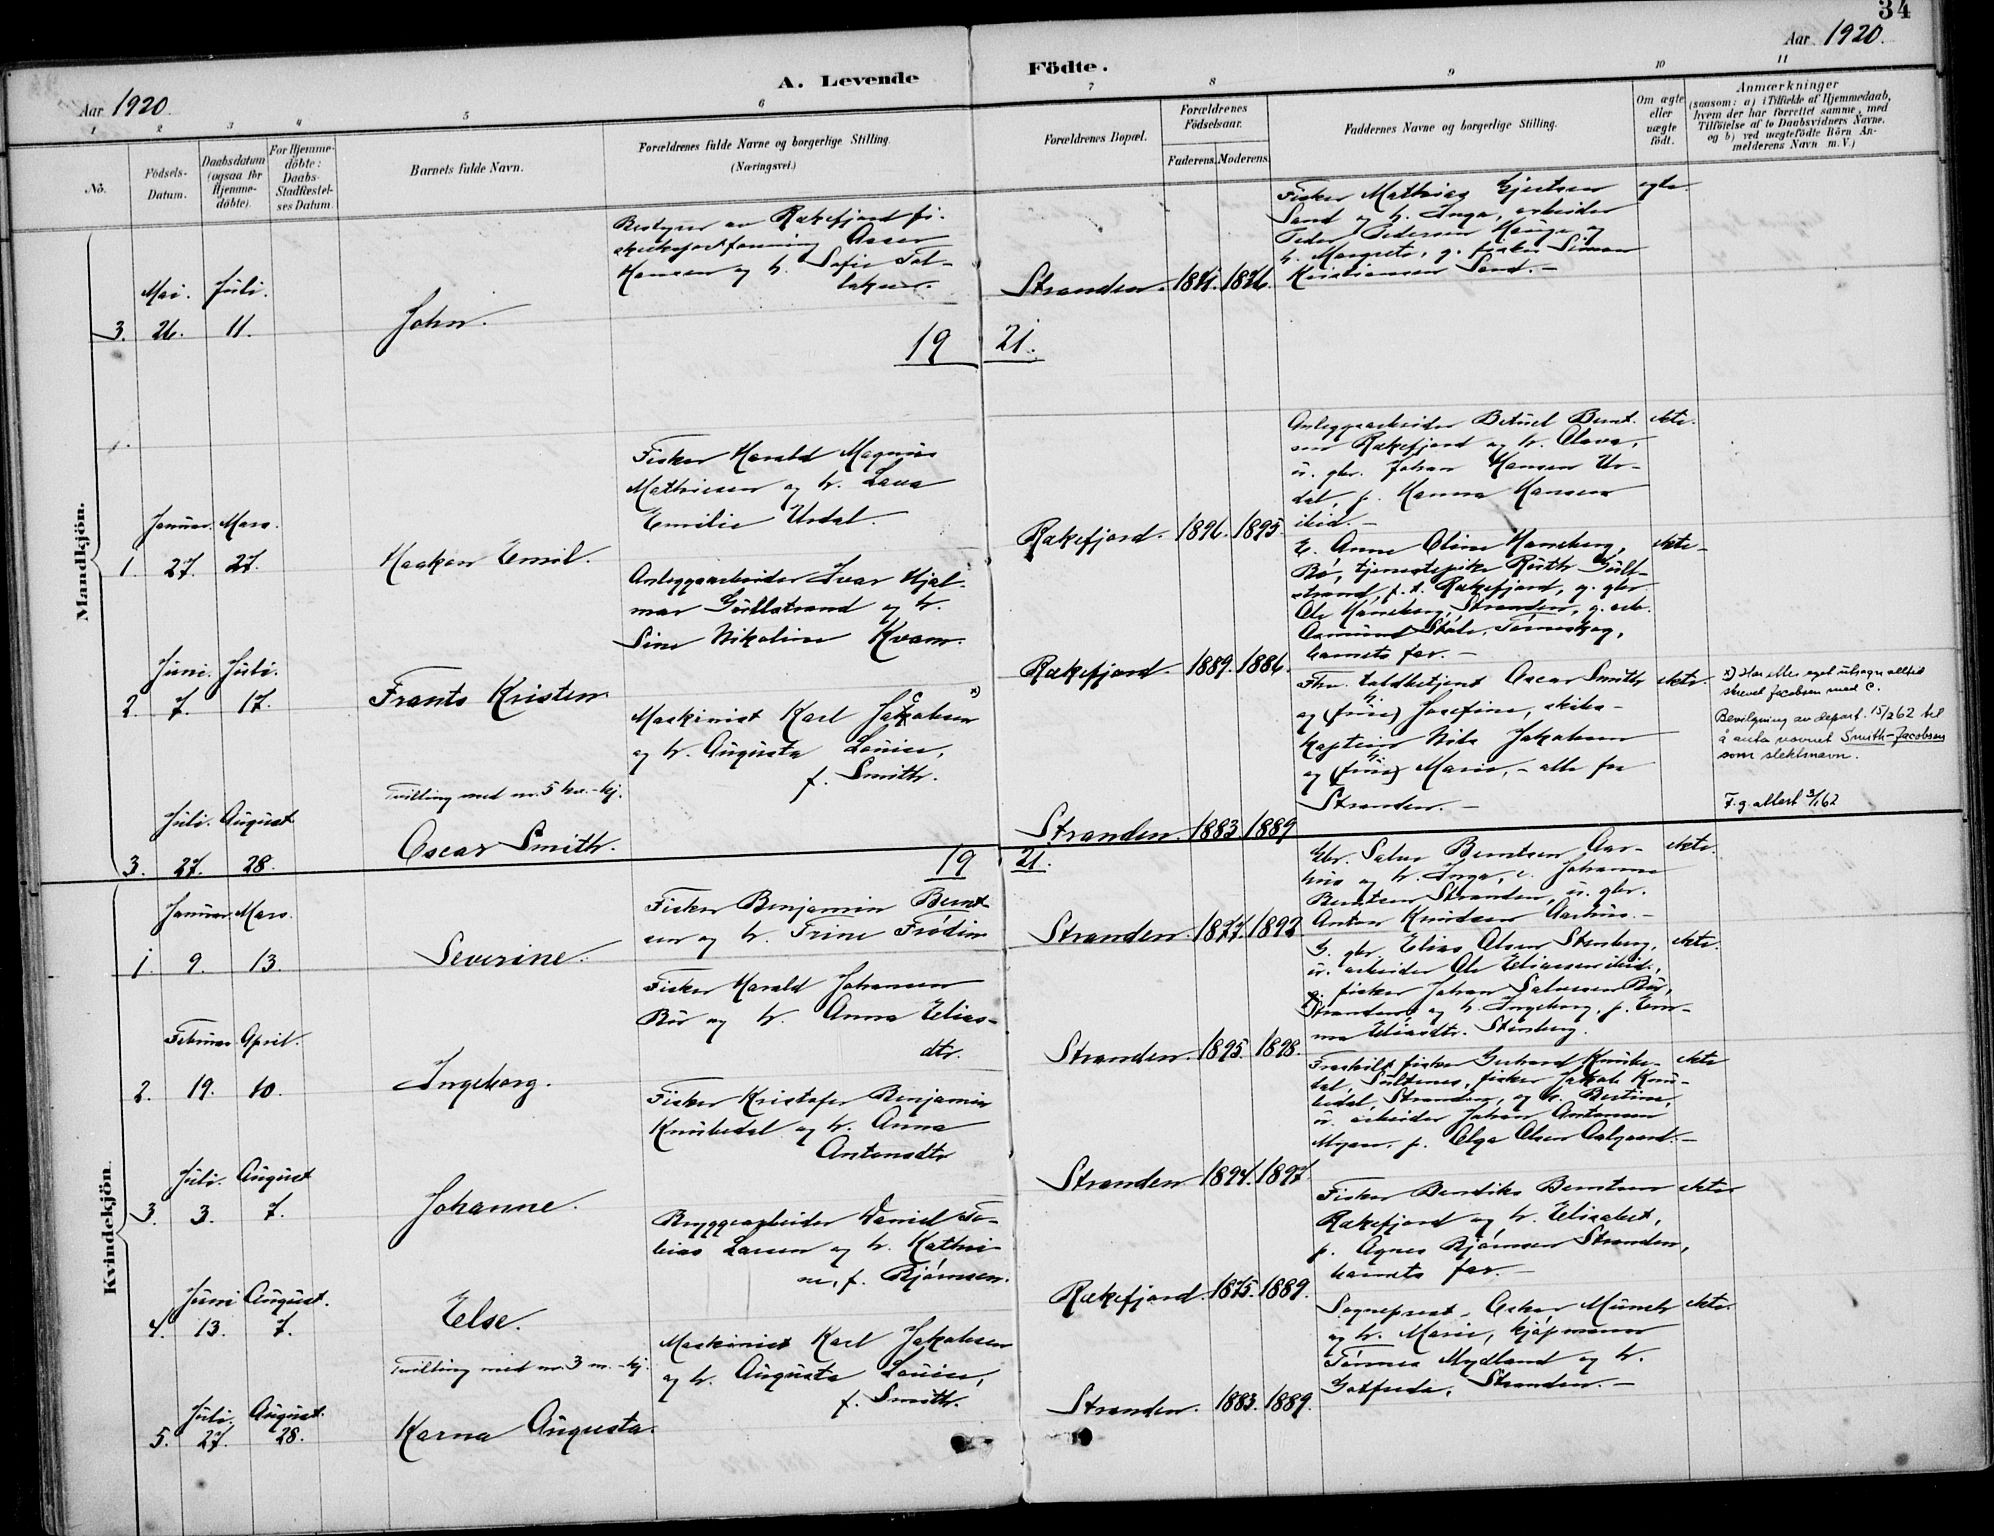 34
Aar 1920.
A. Levende Födte.
Aar 1920.
1 2 3 4 5 6 7 8 9 10 11
No.
Födsels-Datum.
Daabsdatum (ogsaa för Hjemme-döbte).
For Hjemme-döbte: Daabs-Stadfæstel-ses Datum.
Barnets fulde Navn.
Forældrenes fulde Navne og borgerlige Stilling.
(Næringsvei.)
Forældrenes Bopæl.
Forældrenes Födselsaar.
Faderens. Moderens.
Faddernes Navne og borgerlige Stilling.
Om ægte eller uægte födt.
Anmærkninger
(saasom: a) i Tilfælde af Hjemmedaab,
hvem der har forrettet samme, med
Tilföielse af to Daabsvidners Navne.
og b) ved uægtefödte Börn An-
melderens Navn m. V.)
Mandkjön.
Mai. Juli.
3. 26. 11.
John.
Bestyrer av Rækefjord fi-
Hansen og h. Sofie
Stranden.
Fisker Mathias Gjertsen
Sand og h. Inga, arbeider
Peder Pedersen Hauge og
h. Margrete, g. fisker Simon
Kristiansen Sand. -
egte.
19 21.
Januar. Mars.
1. 27. 27.
Haakon Emil.
Fisker Harald Magnus
Mathiesen og h. Lava
Emilie Urdal.
Rækefjord. 1896. 1895.
Anleggsarbeider Betuel Bernt-
sen Rækefjord og h. Olava,
u. gbr. Johan Hansen Ur-
dal, p. Hanna Hansen
ibid. -
ekte.
Juni. Juli.
2. 7. 17.
Frants Kristen
Anleggsarbeider Ivar Hjal-
mar Gullstrand og h.
Sine Nikoline Kvam.
Rækefjord. 1889. 1886.
E. Anne Oline Haneberg,
Bö, tjenestepike Ruth Gull-
strand, p. t. Rækefjord, g. gbr
Ole Haneberg, Stranden, g. arb.
barnets far. -
ekte.
Juli. August
Tvilling med nr. 5 kv.-kj.
3. 27. 28.
Oscar Smith.
Maskinist Karl Jakobsen c x)
og h. Augusta Louise,
f. Smith.
Stranden. 1883. 1889
Fhv. toldbetjent Oscar Smith
og (frue) h. Josefine, skibs-
kaptein Nils Jakobsen
og (frue) h. Marie, - alle fra
Stranden. -
ekte.
x) Har etter eget utsagn alltid
skrevet Jacobsen med c.
Bevilgning av depart. 15/2 62 til
å anta navnet Smith-Jacobsen
som slektsnavn.
F.g. attest 3/1 62
19 21.
Kvindekjön.
Januar Mars.
1. 9. 13.
Severine.
Fisker Benjamin Bernt-
sen og h. Trine Frödine
Stranden. 1877. 1892
Gbr. Salve Berntsen Aar-
hus og h. Inga, e. Johanne
Berntsen Stranden, u. gbr.
Anton Knudsen Aarhus. -
ekte.
Februar April.
2. 19. 10.
Ingeborg.
Fisker Harald Johansen
Bö og h. Anna Elias-
dtr.
Stranden. 1895. 1898.
G. gbr. Elias Olsen Stenberg,
u. arbeider Ole Eliassen ibid.,
g. fisker Johan Salvesen Bö,
Stranden, og h. Ingeborg, p. Em-
ma Eliasdtr. Stenberg.
ekte.
Juli. August
3. 3. 7.
Johanne.
Fisker Kristofer Benjamin
Knubedal og h. Anna
Antonsdtr
Stranden 1894. 1897
Fraskilt fisker Gerhard Knube-
dal, fisker Jakob Knu-
bedal, Stranden, og h. Bertine,
u. arbeider Johan Antonsen
p. Olga Olsen Aalgaard. -
ekte
Juni August.
4. 13. 7.
Else.
Bryggearbeider Daniel To-
bias Larsen og h. Kathri-
ne, f. Björnsen.
Rækefjord. 1875. 1889.
Fisker Bendiks Berntsen
Rækefjord og h. Elisabet,
p. Agnes Björnsen Stranden,
barnets far. -
ekte
Juli. August.
Tvilling med nr. 3 m.-kj.
5. 27. 28.
Karna Augusta.
Maskinist Karl Jakobsen
og h. Augusta Louise,
f. Smith.
Stranden. 1883. 1889.
Sogneprest Oskar Münch
og h. Marie, kjöpmann
Tönnes Mydland og h.
Gotfreda, Stranden. -
ekte.